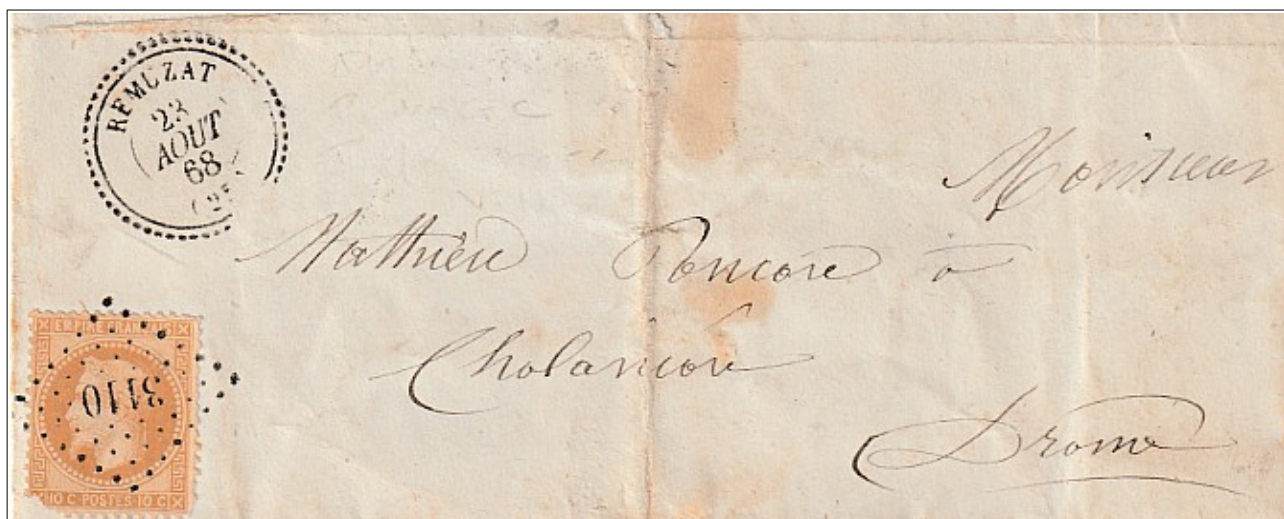 REMUZAT
23
AOUT
68
(25
Monsieur
Matthieu Poncore à
Chalancore
Drome
EMPIRE FRANÇAIS
3110
10 C POSTES 10 C